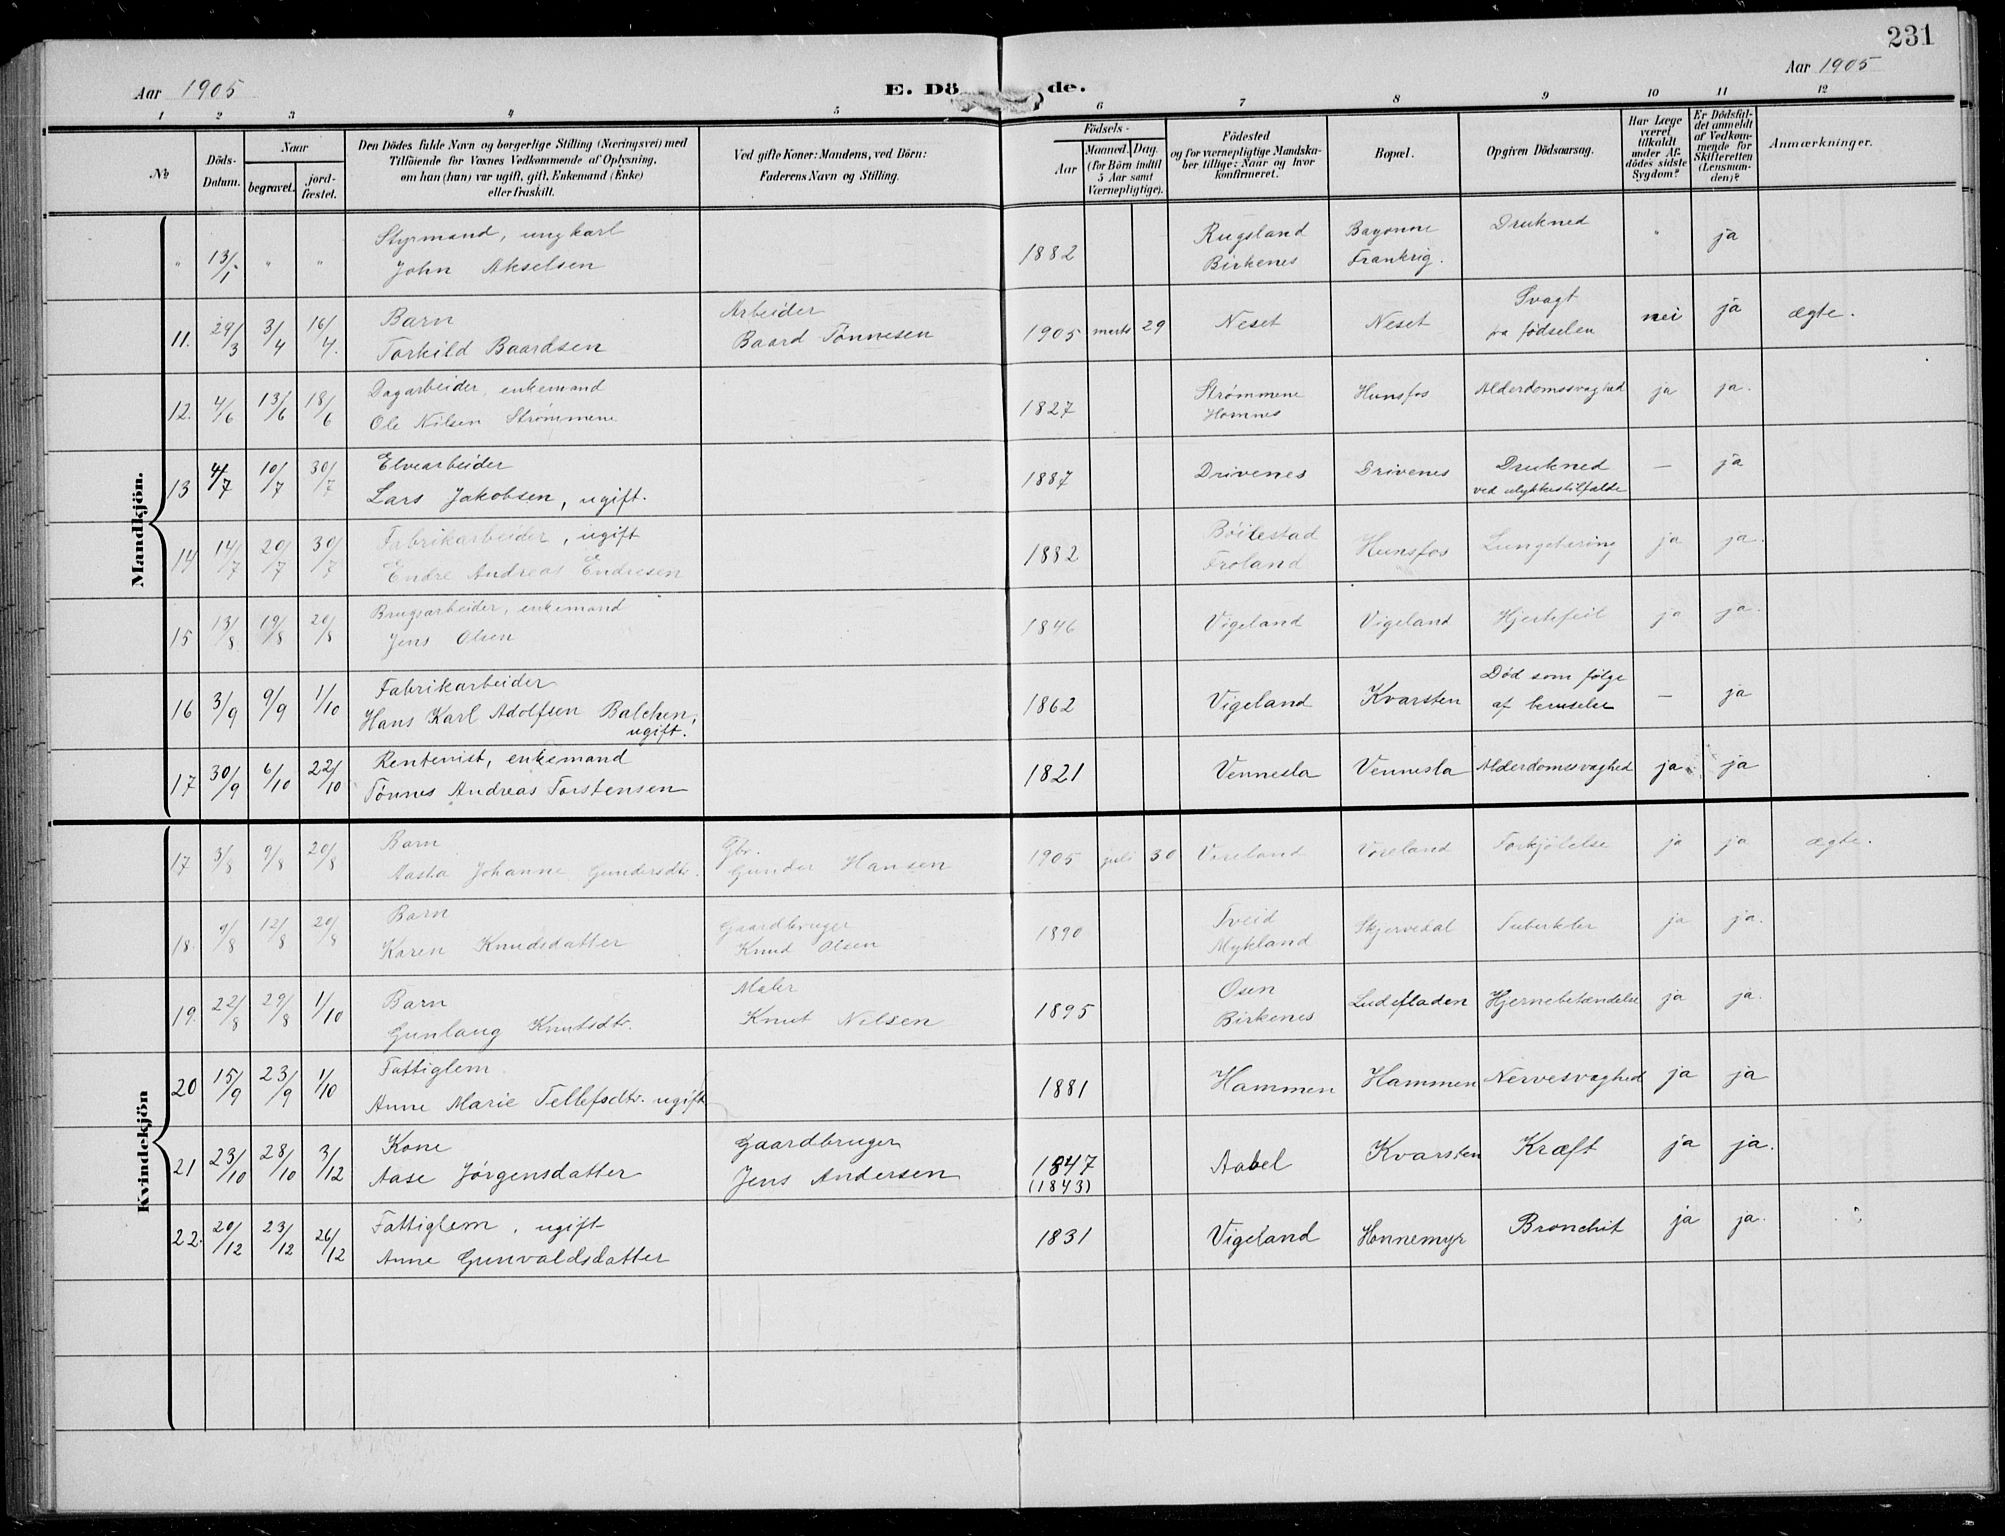 231
Aar 1905
E. Dö
de.
Aar 1905
1 2 3 4 5 6 7 8 9 10 11 12
No
Döds-Datum.
Naar
begravet.
jord-fæstet.
Den Dödes fulde Navn og borgerlige Stilling (Næringsvei) med
Tilföiende for Voxnes Vedkommende af Oplysning,
om han (hun) var ugift, gift, Enkemand (Enke)
eller fraskilt.
Ved gifte Koner: Mandens, ved Börn:
Faderens Navn og Stilling.
Födsels-
Aar
Maaned. Dag.
(for Börn indtil
5 Aar samt
Værnepligtige).
Födested
og for værnepligtige Mandska-
ber tillige: Naar og hvor
konfirmeret.
Bopæl.
Opgiven Dödsaarsag.
Har Læge
været
tilkaldt
under Af-
dödes sidste
Sygdom?
Er Dödsfal-
det anmeldt
af Vedkom-
mende for
Skifteretten
(Lensman-
den)?
Anmærkninger.
Mandkjön.
" 13/1 " " Styrmand, ungkarl
John Akselsen 1882 Rugsland
Birkenes Bayonne
Frankrig. Druknet " ja
11. 29/3 3/4 16/4. Barn
Torkild Baardsen Arbeider
Baard Tønnesen 1905 marts 29 Neset Neset Svagt
fra fødselen nei ja ægte.
12. 4/6 13/6 18/6 Dagarbeider, enkemand
Ole Nilsen Strømmene 1827 Strømmene
Homnes Hunsfos Alderdomssvaghed ja ja.
13 4/7 10/7 30/7 Elvearbeider
Lars Jakobsen, ugift. 1887 Drivenes Drivenes Druknet
ved ulykkestilfælde — ja
14 14/7 20/7 30/7 Fabrikarbeider, ugift
Endre Andreas Endresen 1882 Bøilestad
Froland Hunsfos Lungetæring ja ja.
15 13/8 19/8 20/8 Brugsarbeider, enkemand
Jens Olsen 1846 Vigeland Vigeland Hjertefeil ja ja.
16 3/9 9/9 1/10 Fabrikarbeider
Hans Karl Adolfsen Balchen,
ugift. 1862 Vigeland Kvarsten Død som følge
af beruselse — ja
17 30/9 6/10 22/10 Rentenist, enkemand
Tønnes Andreas Torstensen 1821 Vennesla Vennesla Alderdomssvaghed ja ja
Kvindekjön
17 3/8 9/8 20/8 Barn
Aasta Johanne Gundersdtr. Gbr.
Gunder Hansen 1905 juli 30 Voreland Voreland Forkjølelse ja ja ægte.
18. 9/8 12/8 20/8 Barn
Karen Knudsdatter Gaardbruger
Knud Olsen 1890 Tveid
Mykland Skjervedal Tuberkler ja ja.
19. 22/8 29/8 1/10 Barn
Gunlaug Knutsdtr. Maler
Knut Nilsen 1895 Osen
Birkenes Ludefladen Hjernebetændelse ja ja.
20 15/9 23/9 1/10 Fattiglem
Anne Marie Tellefsdtr. ugift 1881 Hammen Hammen Nervesvaghed ja ja
21 23/10 28/10 3/12 Kone
Aase Jørgensdatter Gaardbruger
Jens Andersen 1847
(1843) Aabel Kvarsten Kræft ja ja.
22. 20/12 23/12 26/12 Fattiglem, ugift
Anne Gunvaldsdatter 1831 Vigeland Honnemyr Bronchit ja ja.